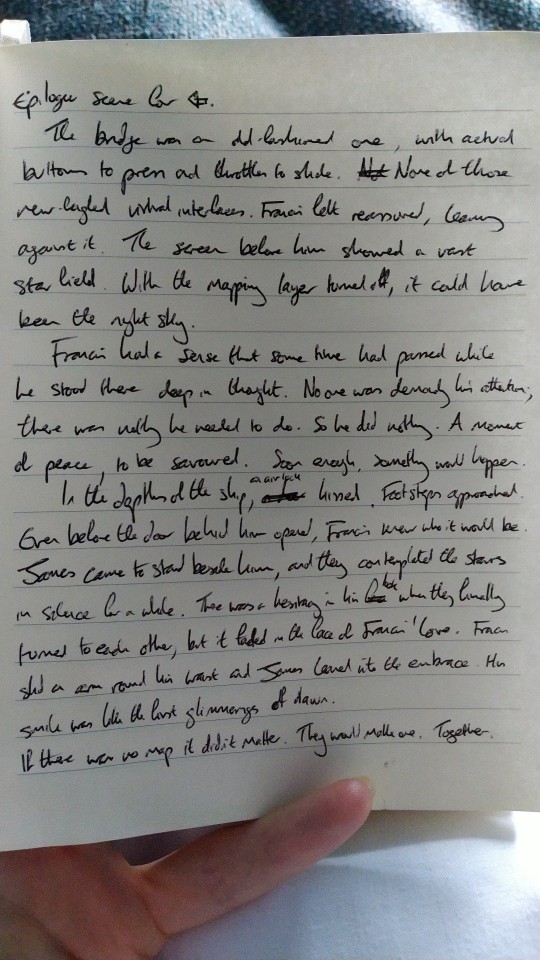 Epilogue scene for
The bridge was an old-fashioned one, with actual
buttons to press and throttles to slide. Not None of those
new-fangled virtual interfaces. Francis felt reassured, leaning
against it. The screen before him showed a vast
star field. With the mapping layer turned off, it could have
been the night sky.
Francis had a sense that some time had passed while
he stood there deep in thought. No one was demanding his attention,
there was nothing he needed to do. So he did nothing. A moment
of peace, to be savoured. Soon enough, something would happen.
In the depths of the ship, an airlock hissed. Footsteps approached.
Even before the door behind him opened, Francis knew who it would be.
James came to stand beside him, and they contemplated the stars
in silence for a while. There was a hesitancy in his look when they finally
turned to each other, but it faded in the face of Francis' love. Francis
slid an arm round his waist and James leaned into the embrace. His
smile was like the first glimmerings of dawn.
If there was no map it didn't matter. They would make one. Together.